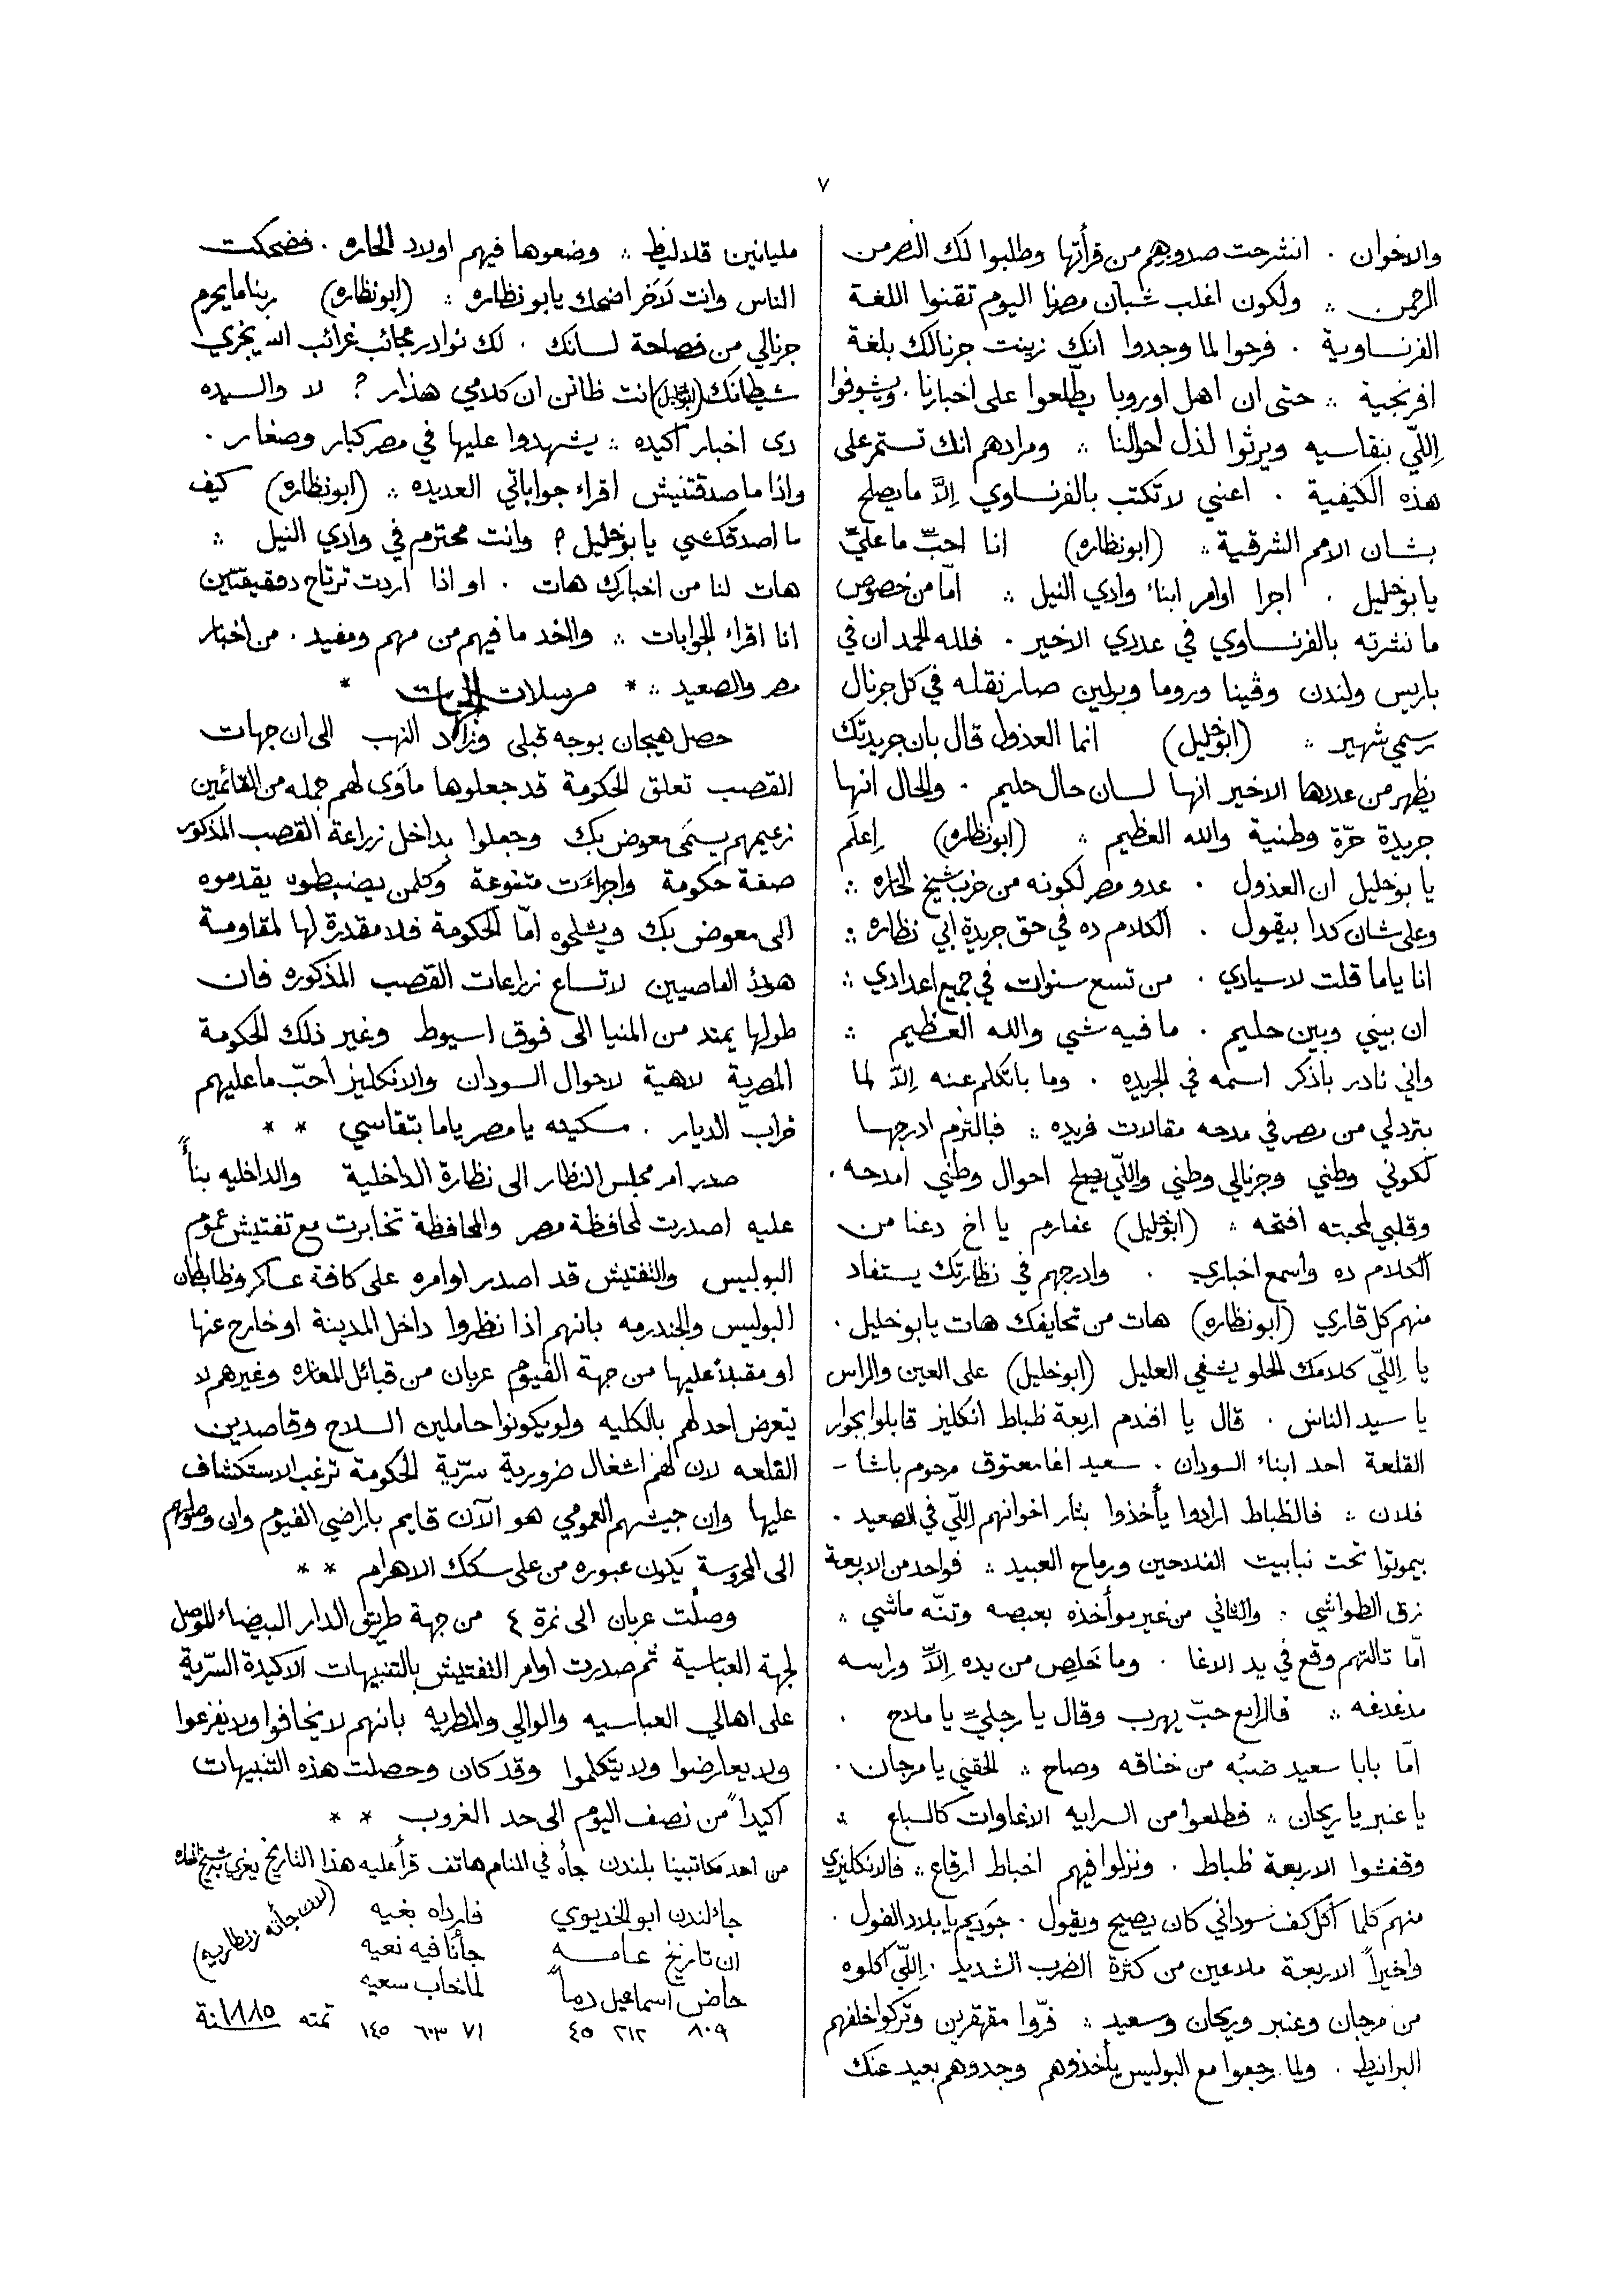 ٧
والاخوان . انشرحت صدورهم من قرأتها وطلبوا لك النصر من
الرحمن ∴ ولكون اغلب شبان مصرنا اليوم تقنوا اللغة
الفرنساوية . فرحوا لما وجدوا انك زينت جرنالك بلغة
افرنجية ∴ حتى ان اهل اوروپا يطّلعوا على اخبارنا . ويشوفوا
اِللّي بنقاسيه ويرثوا لذل احوالنا ∴ ومرادهم انك تستمر على
هذه الكيفية . اعني لا تكتب بالفرنساوي اِلاَّ ما يصلح
بشان الامم الشرقية ∴ (ابو نظاره) انا احبّ ما عليّ
يا بو خليل . اجرا اوامر ابناء وادي النيل ∴ امّا من خصوص
ما نشرته بالفرنساوي في عددي الاخير . فلله الحمد ان في
باريس ولندن وڤينا وروما وبرلين صار نقله في كل جرنال
رسمي شهير ∴ (ابو خليل) انما العذول قال بان جريدتك
يظهر من عددها الاخير انها لسان حال حليم . والحال انها
جريدة حرّة وطنية والله العظيم ∴ (ابو نظاره) إعلَم
يا بو خليل ان العذول . عدو مصر لكونه من حزب شيخ الحاره ∴
وعلى شان كدا بيقول . الكلام ده في حق جريدة ابي نظاره ∴
انا ياما قلت لاسيادي . من تسع سنوات في جميع اعدادي ∴
ان بيني وبين حليم . ما فيه شي والله العظيم ∴
واني نادر باذكر اسمه في الجريده . وما باتكلم عنه اِلاّ لما
بتردلي من مصر في مدحه مقالات فريده ∴ فبالتزم ادرجها
لكوني وطني وجرنالي وطني واللّي يصلح احوال وطني امدحه .
وقلبي لمحبته افتحه ∴ (ابو خليل) عفارم يا اخ دعنا من
الكلام ده واسمع اخباري . وادرجهم في نظارتك يستفاد
منهم كل قاري (ابو نظاره) هات من تحايفك هات يا بو خليل .
يا اِللّي كلامك الحلو يشفي العليل (ابو خليل) على العين والراس
يا سيد الناس . قال يا افندم اربعة ظباط انكليز قابلوا بجوار
القلعة احد ابناء السودان . سعيد اغا معتوق مرحوم باشا –
فلان ∴ فالظباط ارادوا يأخذوا بثار اخوانهم اِللّي في الصعيد .
بيموتوا تحت نبابيت الفلاحين ورماح العبيد ∴ فواحد من الاربعة
زق الطواشي . والثاني من غير موأخذه بعبصه وتنّه ماشي ∴
امّا تالتهم وقع في يد الاغا . وما خَلِص من يده اِلاَّ وراسه
مدغدغه ∴ فالرابع حبّ يهرب وقال يا رجليّ يا ملاح .
امّا بابا سعيد ضبُه من خناقه وصاح ∴ الحقني يا مرجان .
يا عنبر يا ريحان ∴ فطلعوا من السرايه الاغاوات كالسباع ∴
وقفشوا الاربعة ظباط . ونزلوا فيهم اخباط ارقاع ∴ فالانكليزي
منهم كلما آكل كف سوداني كان يصيح ويقول . جوديم يا بلاد الفول .
واخيراً الاربعة ملاعين من كثرة الضرب الشديد . اِللّي اكلوه
من مرجان وعنبر وريحان وسعيد ∴ فرّوا مقهقرين وتركوا خلفهم
البرانيط . ولما رجعوا مع البوليس يأخذوهم وجدوهم بعيد عنك
مليانين قلاليط ∴ وضعوها فيهم اولاد الحاره . فضحكت
الناس وانت لَاخر اضحك يا بو نظاره ∴ (ابو نظاره) ربنا ما يحرم
جرنالي من فصاحة لسانك . لك نوادر عجائب غرائب الله يخزي
شيطانك (ابو خليل) انت ظانن ان كلامي هذار ؟ لا والسيده
دى اخبار اكيده ∴ يشهدوا عليها في مصر كبار وصغار .
واذا ما صدقتنيش اقراء جواباتي العديده ∴ (ابو نظاره) كيف
ما اصدقكشي يا بو خليل ؟ وانت محترم في وادي النيل ∴
هات لنا من اخبارك هات . او اذا اردت ترتاح دقيقتين
انا اقراء الجوابات ∴ واخد ما فيهم من مهم ومفيد . من اخبار
مصر والصعيد ∴ * مرسلات الجهات *
حصل هيجان بوجه قبلى وزاد النهب الى ان جهات
القصب تعلق الحكومة قد جعلوها مأوى لهم جمله من القائمين
زعيمهم يسمَى معوض بك وجعلوا بداخل زراعة القصب المذكور
صفة حكومة واجراءَت متنوعة وكلمن يضبطوه يقدموه
الى معوض بك ويشلحوه امّا الحكومة فلا مقدرة لها لمقاومة
هؤلاء العاصيين لاتساع زراعات القصب المذكوره فان
طولها يمتد من المنيا الى فوق اسيوط وغير ذلك الحكومة
المصرية لاهية لاحوال السودان والانكليز احبّ ما عليهم
خراب الديار . مسكينه يا مصر ياما بتقاسي * *
صدر امر مجلس النظار الى نظارة الداخلية والداخليه بناً
عليه اصدرت لمحافظة مصر والمحافظة تخابرت مع تفتيش عموم
البوليس والتفتيش قد اصدر اوامره على كافة عساكر وظابطان
البوليس والجندرمه بانهم اذا نظروا داخل المدينة او خارج عنها
او مقبلاً عليها من جهة الفيوم عربان من قبائل المغاره وغيرهم لا
يتعرض احد لهم بالكليه ولو يكونوا حاملين السلاح وقاصدين
القلعه لان لهم اشغال ضرورية سرّية الحكومة ترغب الاستكشاف
عليها وان جيشهم العمومي هو الآن قايم باراضي الفيوم وان وصولهم
الى المحروسة يكون عبوره من على سكك الاهرام * *
وصلت عربان الى نمرة ٤ من جهة طريق الدار البيضاء للوصل
لجهة العبّاسية ثم صدرت اوامر التفتيش بالتنبيهات الاكيدة السرّية
على اهالي العباسيه والوالي والمطريه بانهم لا يخافوا ولا يفزعوا
ولا يعارضوا ولا يتكلموا وقد كان وحصلت هذه التنبيهات
اكيداً من نصف اليوم الى حد الغروب * *
من احد مكاتبينا بلندن جاْه في المنام هاتف قرأ عليه هذا التاريخ يعزي شيخ الحاره
جاء لندن ابو الخديوي فارداه بغيه
ان تاريخ عامه جأنا فيه نعيه
خاض اسماعيل دماً لما خاب سعيه
٨٠٩ ٢١٢ ٤٥ ٧١ ٦٠٣ ١٤٥ تمته ١٨٨٥ سنة